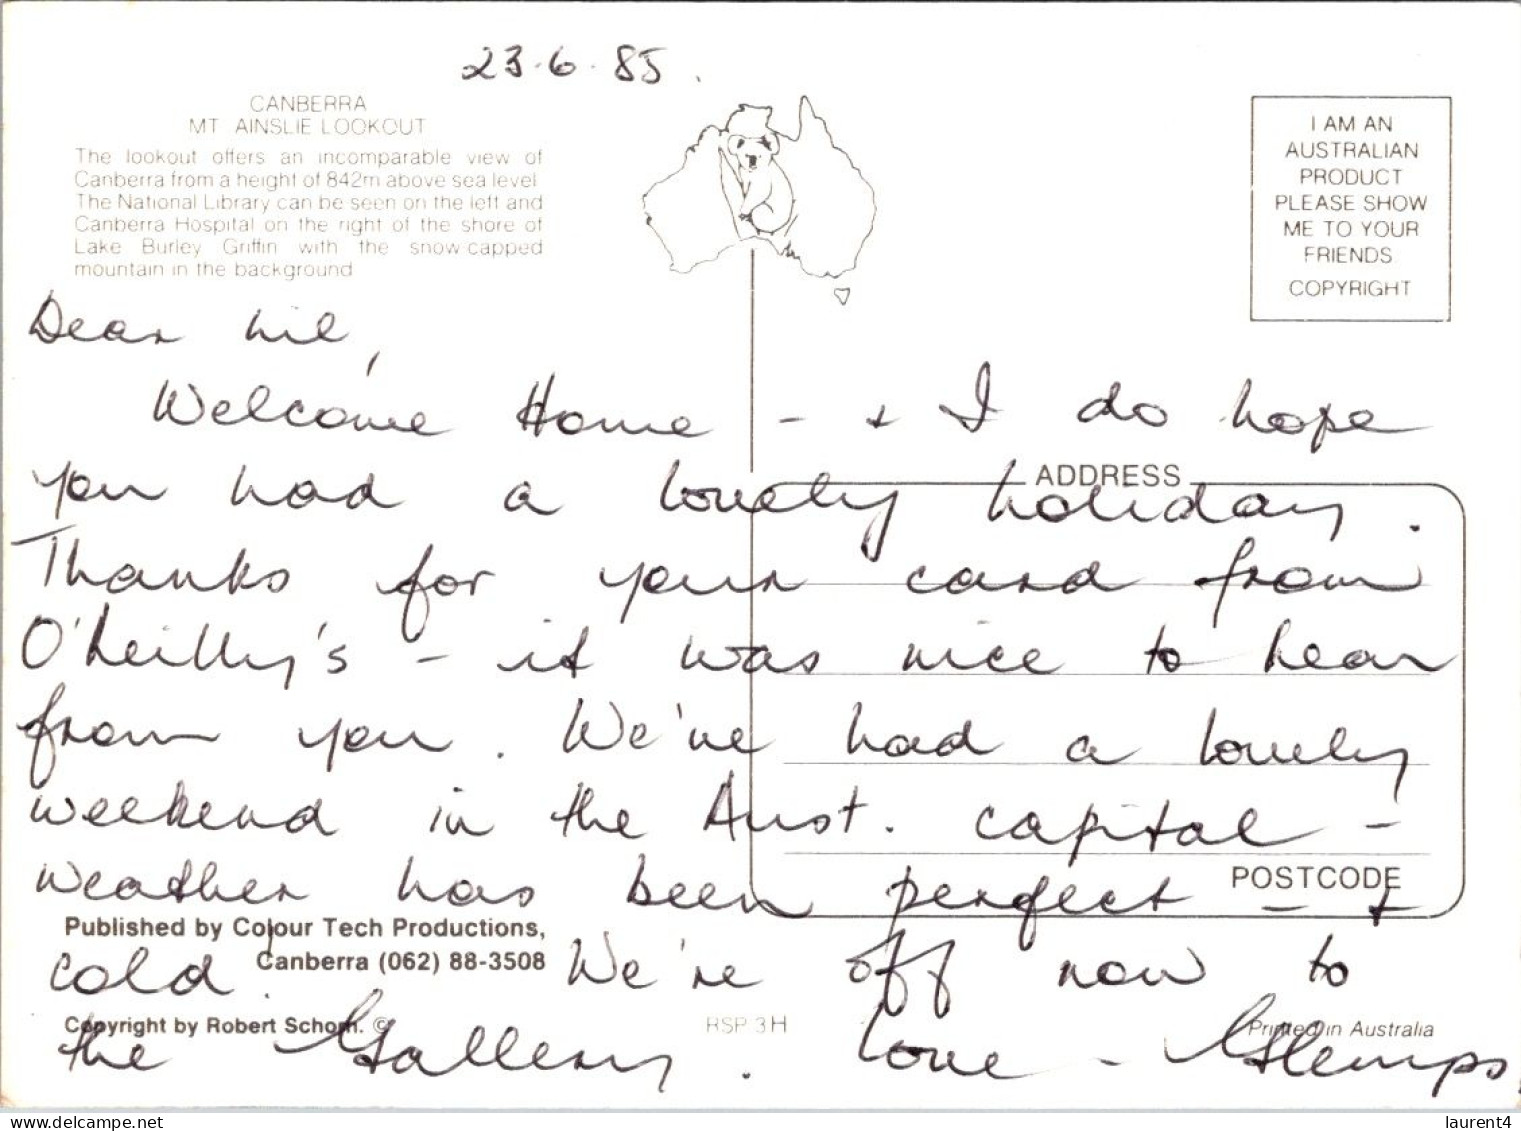 23.6.85.
CANBERRA
MT AINSLIE LOOKOUT
The lookout offers an incomparable view of
Canberra from a height of 842m above sea level
The National Library can be seen on the left and
Canberra Hospital on the right of the shore of
Lake Burley Griffin with the snow-capped
mountain in the background
I AM AN
AUSTRALIAN
PRODUCT
PLEASE SHOW
ME TO YOUR
FRIENDS
COPYRIGHT
Dear
Welcome Home - + I do hope
ADDRESS
you had a lovely holiday.
Thanks for your card from
O'Reilly's - it was nice to hear
from you. We've had a lovely
weekend in the Aust. capital -
weather has been perfect - +
POSTCODE
Published by Colour Tech Productions,
Canberra (062) 88-3508
cold. We're off now to
Copyright by Robert Schorn. ©
RSP 3H
Printed in Australia
the Gallery. Love -
laurent4